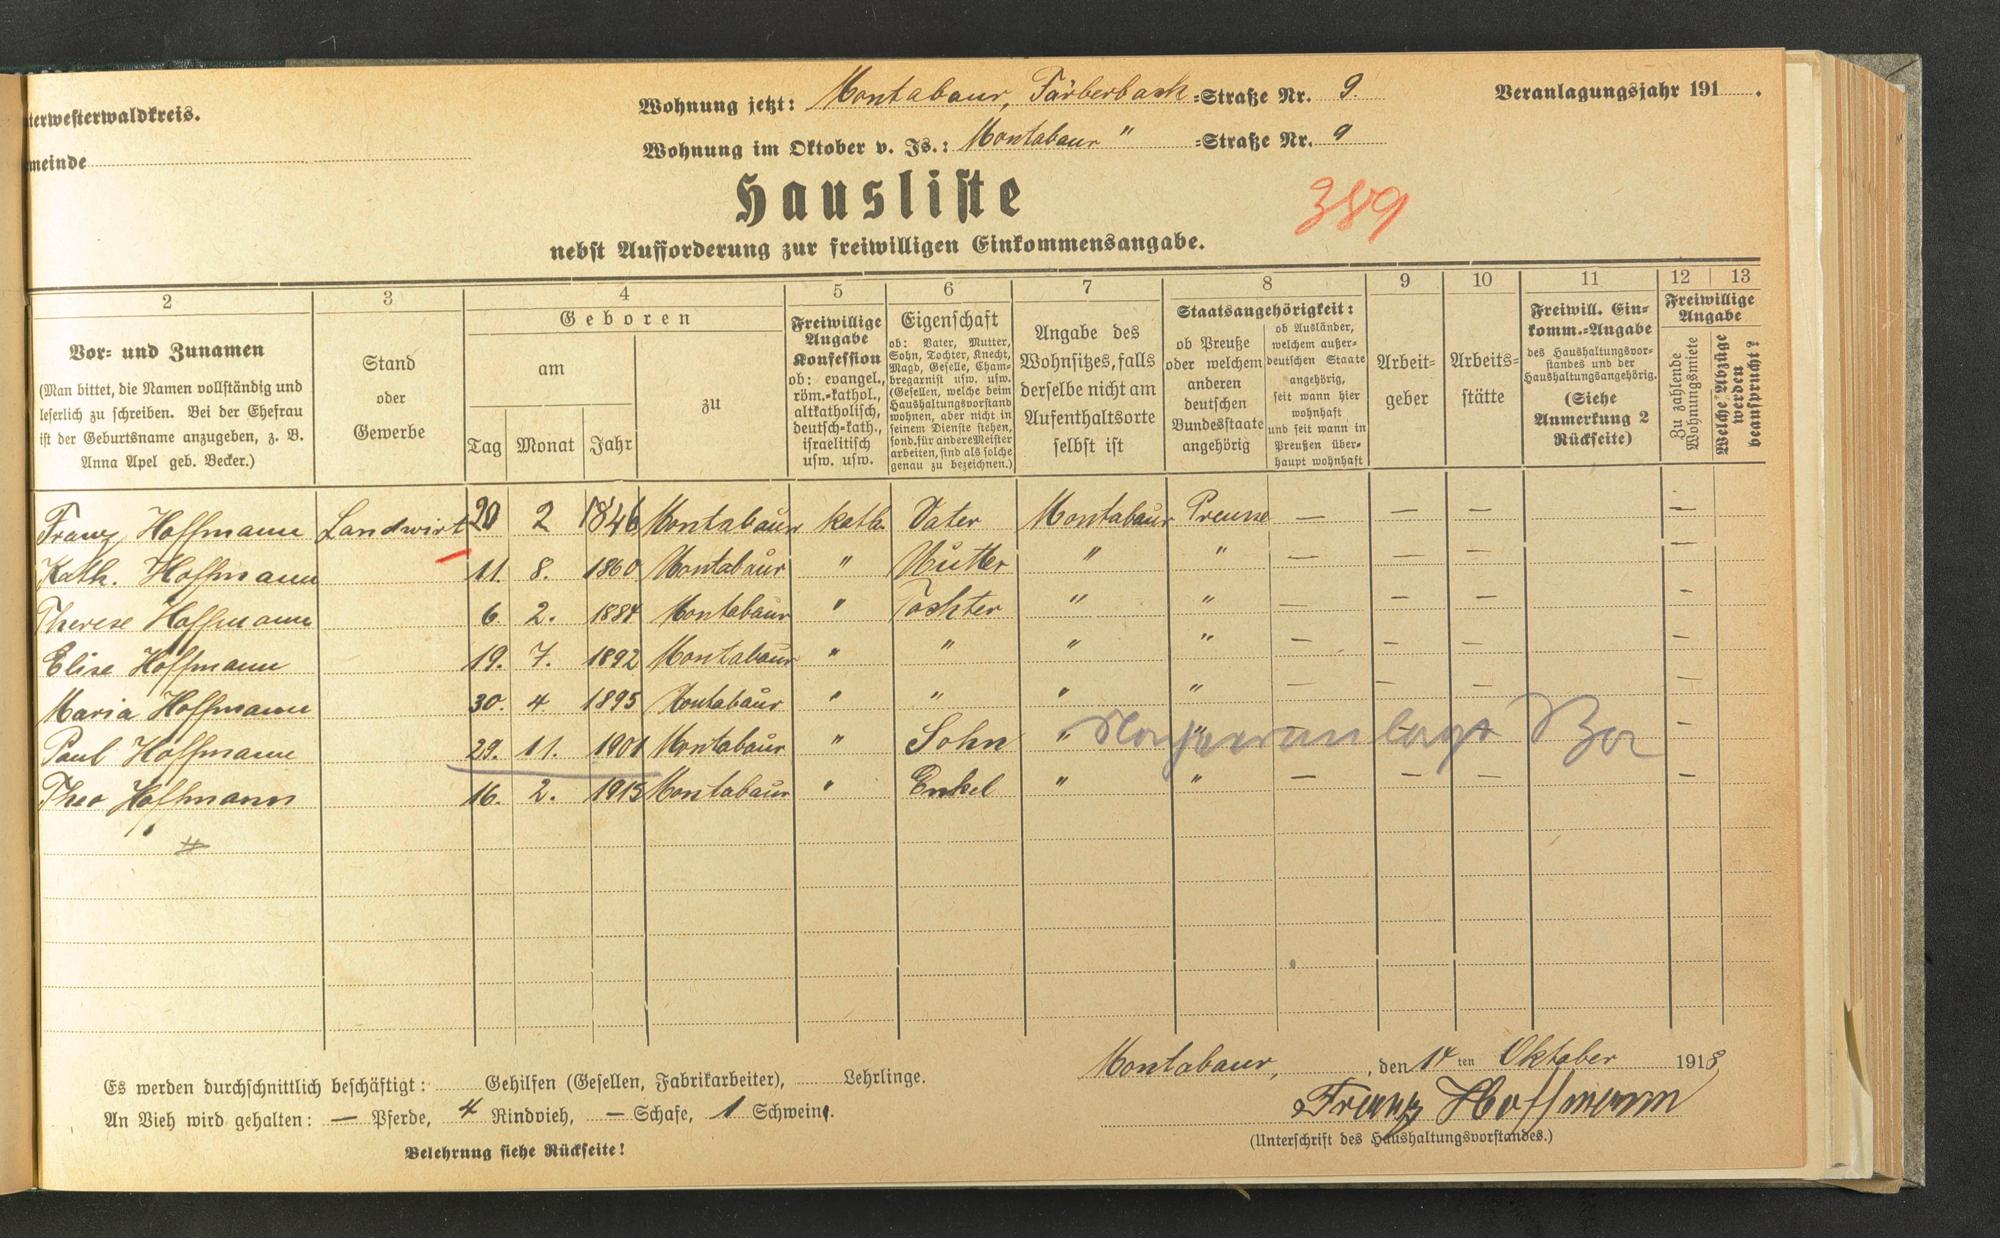 terwesterwaldkreis.
meinde
Wohnung jetzt: Montabaur, Färberbach-Straße Nr. 9.
Wohnung im Oktober v. Js.: Montabaur " -Straße Nr. 9
Veranlagungsjahr 191 .
Hausliste
389
nebst Aufforderung zur freiwilligen Einkommensangabe.
2 3 4 5 6 7 8 9 10 11 12 13
Vor- und Zunamen
(Man bittet, die Namen vollständig und
leserlich zu schreiben. Bei der Ehefrau
ist der Geburtsname anzugeben, z. B.
Anna Apel geb. Becker.)
Stand
oder
Gewerbe
Geboren
am
Tag Monat Jahr
zu
Freiwillige
Angabe
Konfession
ob: evangel.,
röm.-kathol.,
altkatholisch,
deutsch-kath.,
israelitisch
usw. usw.
Eigenschaft
ob: Vater, Mutter,
Sohn, Tochter, Knecht,
Magd, Geselle, Cham-
bregarnist usw. usw.
(Gesellen, welche beim
Haushaltungsvorstand
wohnen, aber nicht in
seinem Dienste stehen,
sond. für andere Meister
arbeiten, sind als solche
genau zu bezeichnen.)
Angabe des
Wohnsitzes, falls
derselbe nicht am
Aufenthaltsorte
selbst ist
Staatsangehörigkeit:
ob Preuße
oder welchem
anderen
deutschen
Bundesstaate
angehörig
ob Ausländer,
welchem außer-
deutschen Staate
angehörig,
seit wann hier
wohnhaft
und seit wann in
Preußen über-
haupt wohnhaft
Arbeit-
geber
Arbeits-
stätte
Freiwill. Ein-
komm.-Angabe
des Haushaltungsvor-
standes und der
Haushaltungsangehörig.
(Siehe
Anmerkung 2
Rückseite)
Freiwillige
Angabe
Zu zahlende
Wohnungsmiete
Welche Abzüge
werden
beansprucht?
Franz Hoffmann Landwirt 20 2 1846 Montabaur kath. Vater Montabaur Preusse — — — —
Kath. Hoffmann 11. 8. 1860 Montabaur " Mutter " " — — — —
Therese Hoffmann 6 2. 1884 Montabaur " Tochter " " — — — —
Elise Hoffmann 19. 7. 1892 Montabaur " " " " — — — —
Maria Hoffmann 30. 4 1895 Montabaur " " " " — — — —
Paul Hoffmann 29. 11. 1901 Montabaur " Sohn " " — — — —
Theo Hoffmann 16. 2. 1915 Montabaur " Enkel " " — — — —
Es werden durchschnittlich beschäftigt: Gehilfen (Gesellen, Fabrikarbeiter), Lehrlinge.
An Vieh wird gehalten: — Pferde, 4 Rindvieh, — Schafe, 1 Schweine.
Belehrung siehe Rückseite!
Montabaur, , den 14ten Oktober 1918
Franz Hoffmann
(Unterschrift des Haushaltungsvorstandes.)